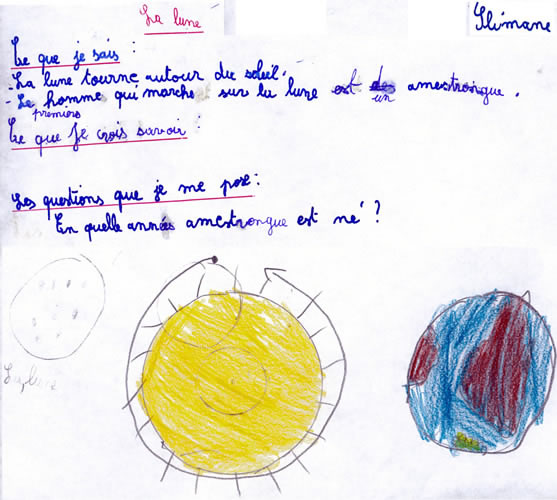 La lune
Slimane
Ce que je sais :
- La lune tourne autour du soleil.
- Le homme qui marche sur la lune est un amestrongue.
premiers
Ce que je crois savoir :
Les questions que je me pose :
En quelle années amestrongue est né ?